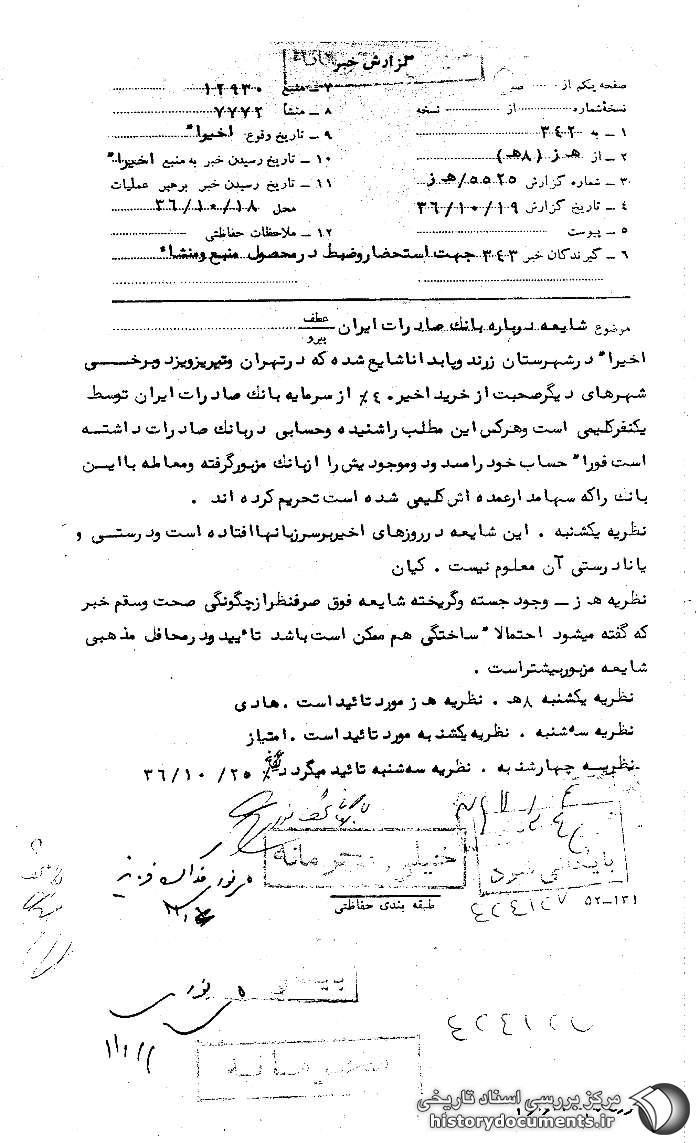 گزارش خبر
صفحه یکم از ........ ص ۷ ـ منبع ۱۲۹۳۰
نسخهٔ شماره ........ از ........ نسخه ۸ ـ منشأ ۷۷۷۲
۱ ـ به ۳۴۲ ۹ ـ تاریخ وقوع اخیراً
۲ ـ از هـ ز (۸هـ) ۱۰ ـ تاریخ رسیدن خبر به منبع اخیراً
۳ ـ شماره گزارش ۵۵۲۵/هـ ز ۱۱ ـ تاریخ رسیدن خبر برهبر عملیات
۴ ـ تاریخ گزارش ۳۶/۱۰/۱۹ محل ۳۶/۱۰/۱۸
۵ ـ پیوست ۱۲ ـ ملاحظات حفاظتی
۶ ـ گیرندگان خبر ۳۴۳ جهت استحضار وضبط درمحصول منبع ومنشاء
موضوع شایعه درباره بانك صادرات ایران عطف
پیرو
اخیراً درشهرستان زرند وپابدانا شایع شده که درتهران وتبریز ویزد وبرخسی
شهرهای دیگرصحبت از خرید اخیر ۴۰٪ از سرمایه بانك صادرات ایران توسط
یکنفرکلیمی است وهرکس این مطلب راشنیده وحسابی دربانك صادرات داشتسه
است فوراً حساب خود رامسدود وموجودیش را ازبانك مزبورگرفته ومعامله بااین
بانك راکه سهامدارعمده اش کلیمی شده است تحریم کرده اند .
نظریه یکشنبه . این شایعه درروزهای اخیربرسرزبانهاافتاده است ودرستی و
یانادرستی آن معلوم نیست . کیان
نظریه هـ ز ـ وجود جسته وگریخته شایعه فوق صرفنظرازچگونگی صحت وسقم خبر
که گفته میشود احتمالاً ساختگی هم ممکن است باشد تائیید ودرمحافل مذهبی
شایعه مزبوربیشتراست .
نظریه یکشنبه ۸هـ . نظریه هـ ز مورد تائید است . هادی
نظریه سه‌شنبه . نظریه یکشنبه مورد تائید است . امتیاز
نظریسه چهارشنبه . نظریه سه‌شنبه تائید میگردد ۳۶/۱۰/۲۵
خیلی محرمانه
بایگانی شود
طبقه بندی حفاظتی
۵۲-۱۳۱
نوری
مرکز بررسی اسناد تاریخی
historydocuments.ir